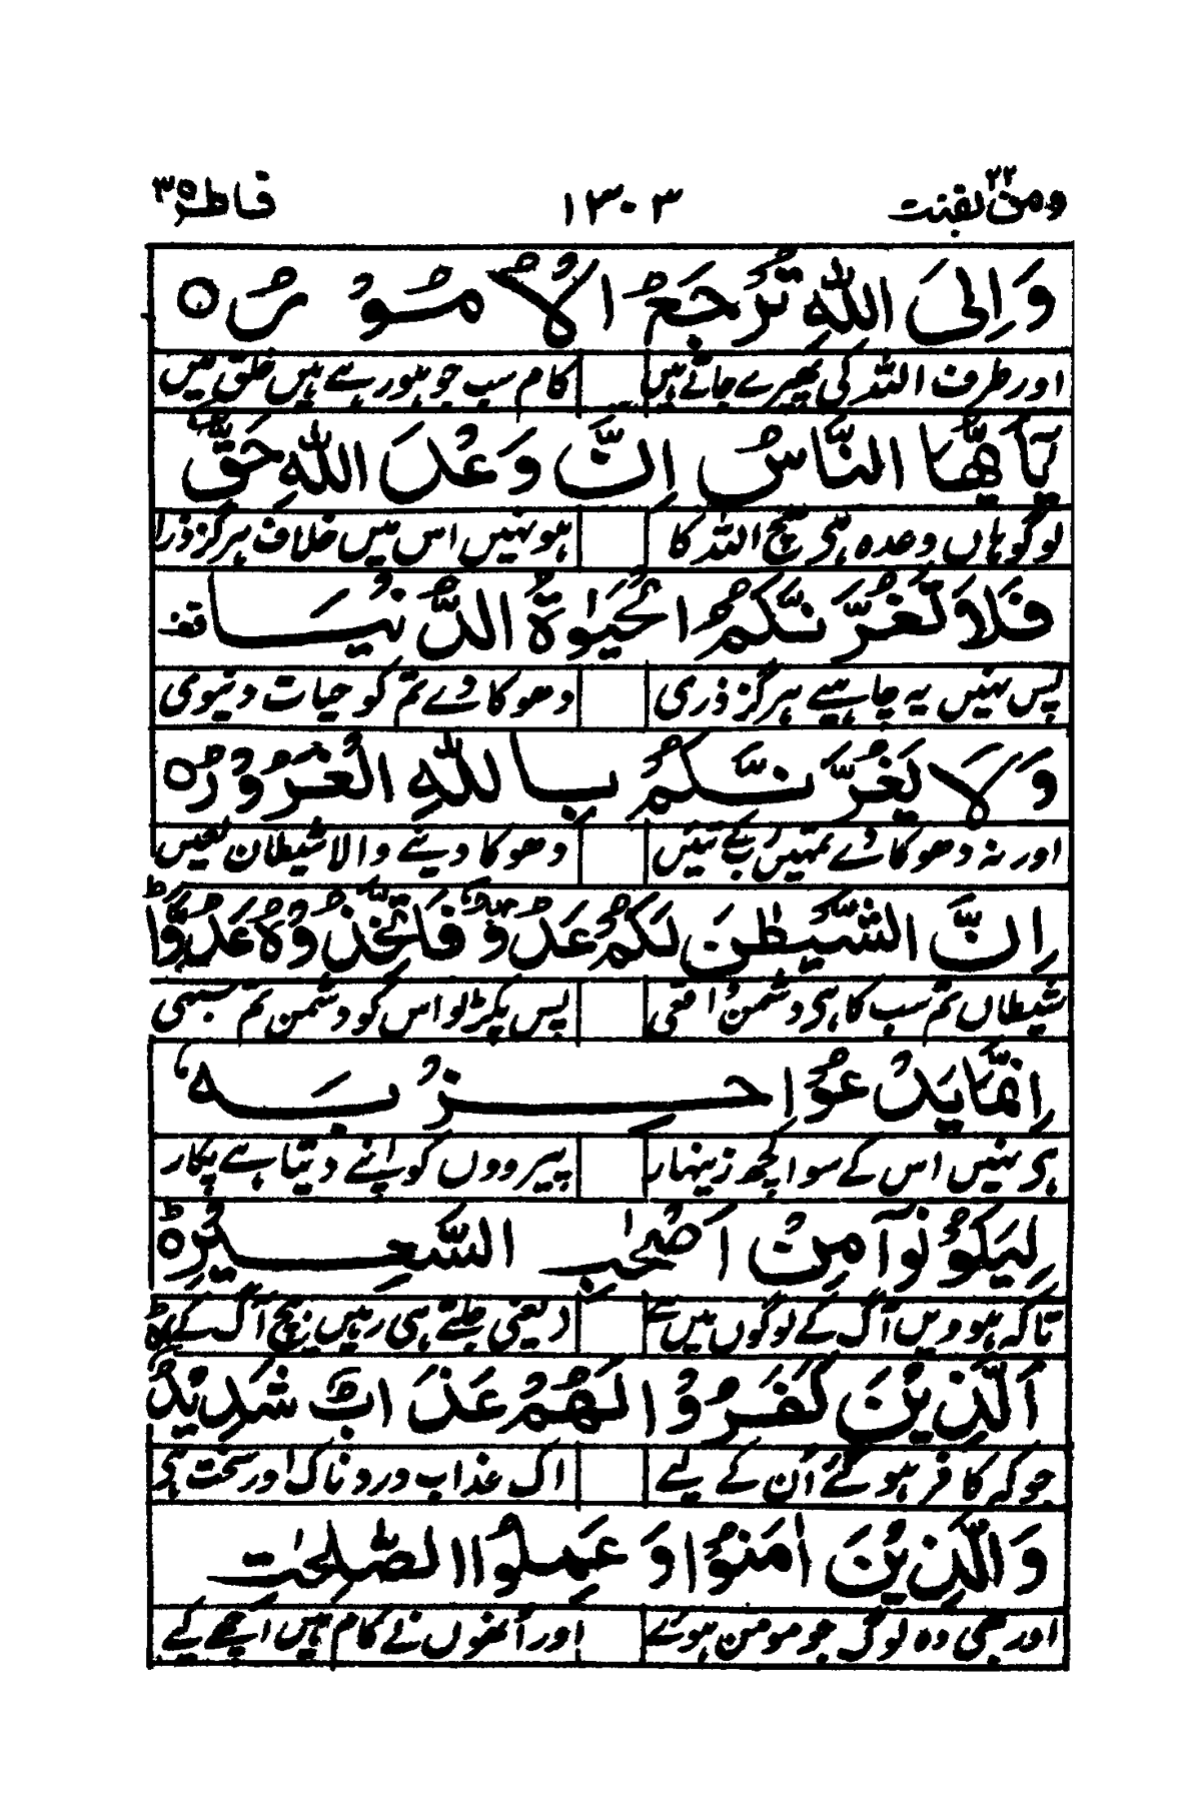 ومن یقنت ۲۲ ۱۳۰۳ فاطر ۳۵
وَاِلَى اللّٰهِ تُرْجَعُ الْاُمُوْرُ ۝
اور طرف اللہ کی پھیرے جاتے ہیں کام سب جو ہو رہے ہیں خلق میں
يٰۤاَيُّهَا النَّاسُ اِنَّ وَعْدَ اللّٰهِ حَقٌّ
لوگو ہاں وعدہ ہی سچ اللہ کا ہو نہیں اس میں خلاف ہرگز ذرا
فَلَا تَغُرَّنَّكُمُ الْحَيٰوةُ الدُّنْيَا وقفه
پس نہیں یہ چاہیے ہرگز ذری دھوکا دے تم کو حیات دنیوی
وَلَا يَغُرَّنَّكُمْ بِاللّٰهِ الْغَرُوْرُ ۝
اور نہ دھوکا دے تمہیں دھوکا دینے والا شیطان لعیں
اِنَّ الشَّيْطٰنَ لَكُمْ عَدُوٌّ فَاتَّخِذُوْهُ عَدُوًّا ؕ
شیطاں تم سب کا ہی دشمن پس پکڑ لو اس کو دشمن تم سبھی
اِنَّمَا يَدْعُوْا حِزْبَهٗ
ہی نہیں اس کے سوا کچھ زینہار پیرووں کو اپنے دیتا ہے پکار
لِيَكُوْنُوْا مِنْ اَصْحٰبِ السَّعِيْرِ ۝ؕ
تاکہ ہوویں آگ کے لوگوں میں سے یعنی جلتے ہی رہیں بیچ آگ کے
اَلَّذِيْنَ كَفَرُوْا لَهُمْ عَذَابٌ شَدِيْدٌ
جو کہ کافر ہو گئے اُن کے لیے اک عذاب دردناک اور سخت ہی
وَالَّذِيْنَ اٰمَنُوْا وَعَمِلُوا الصّٰلِحٰتِ
اور بھی وہ لوگ جو مومن ہوئے اور اُنھوں نے کام ہیں اچھے کیے